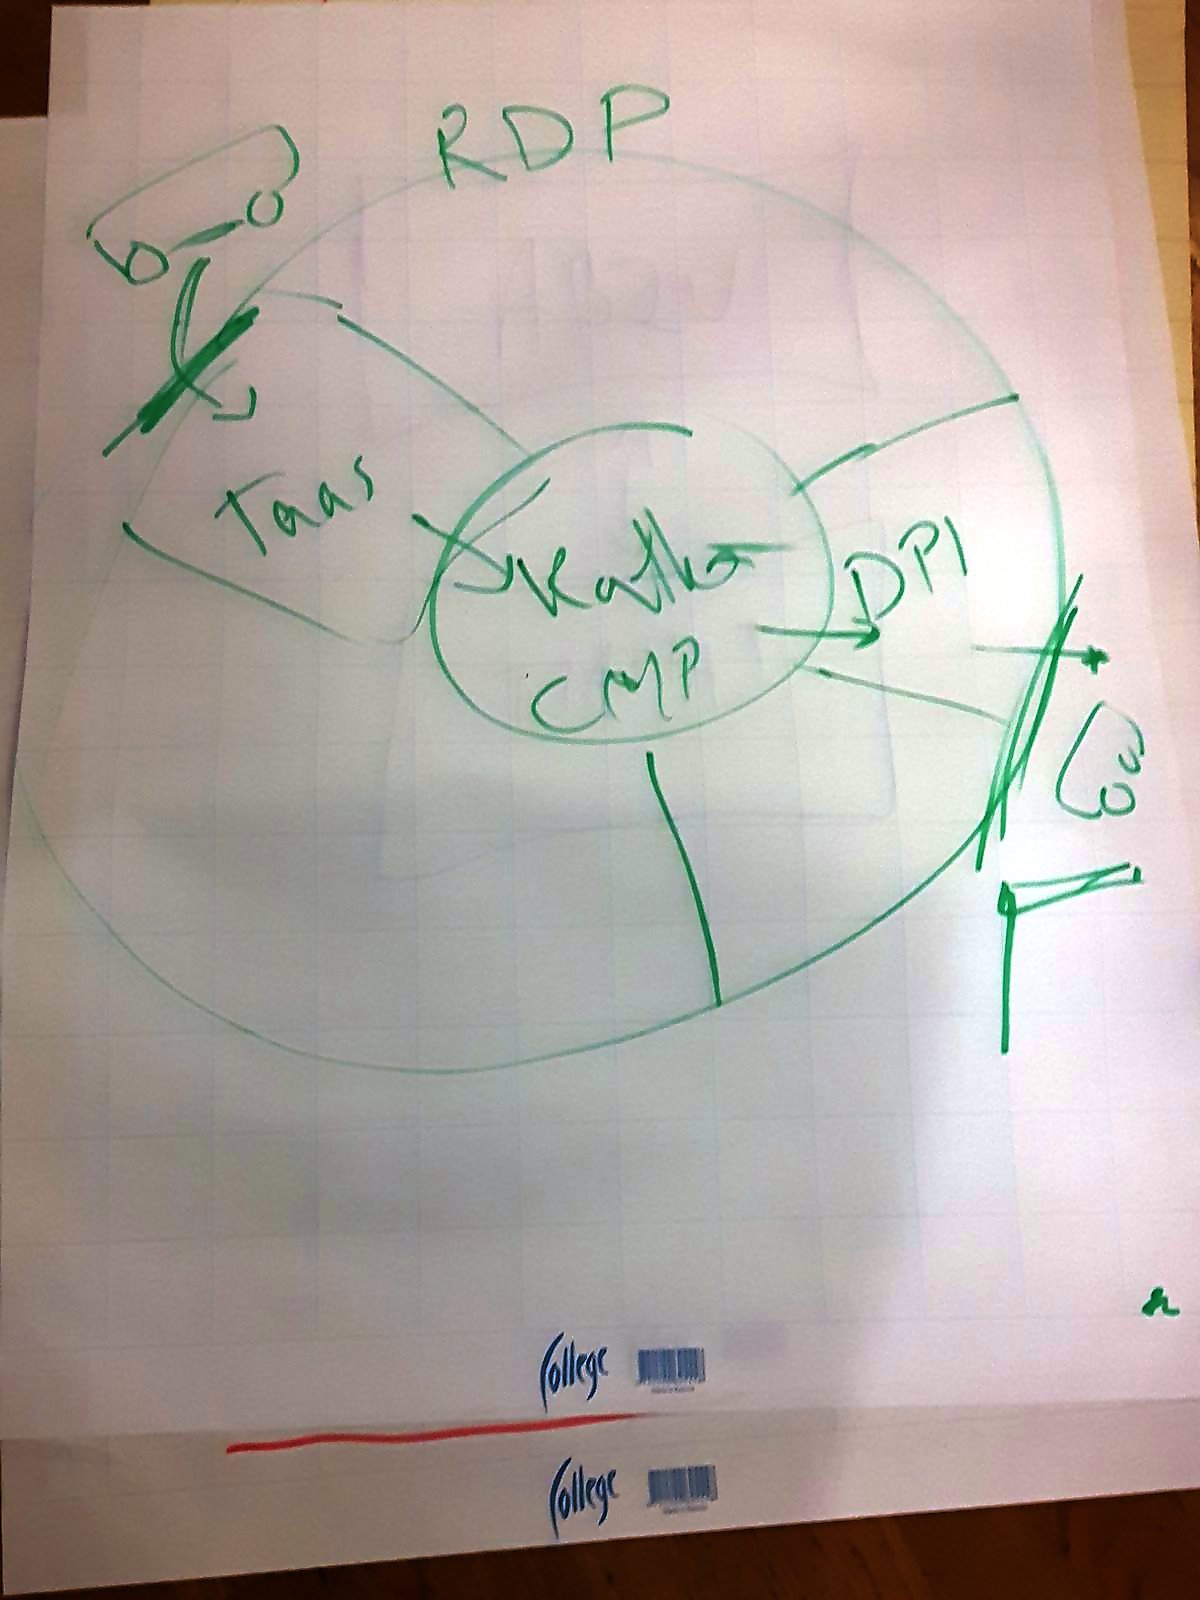 RDP
Taas
Kafka
CMP
DPI
College
College